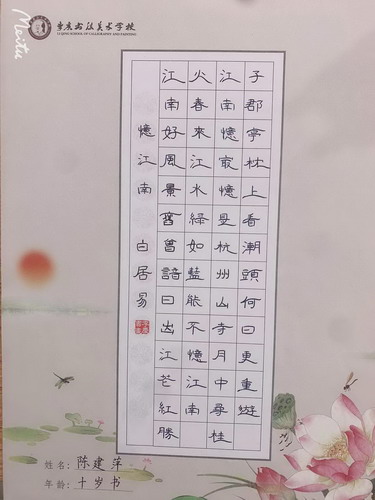 Meitu
李庆书法美术学校
LI QING SCHOOL OF CALLIGRAPHY AND PAINTING
憶江南 白居易
江南好風景舊曾諳日出江花紅勝
火春來江水綠如藍能不憶江南
江南憶最憶是杭州山寺月中尋桂
子郡亭枕上看潮頭何日更重遊
姓名：陈建萍
年龄：十岁书